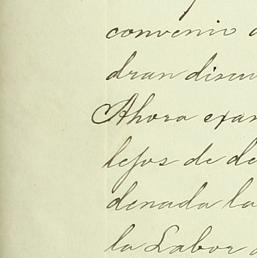 convenio
dran discu
Ahora exam
lejos de de
denada la
la Labor